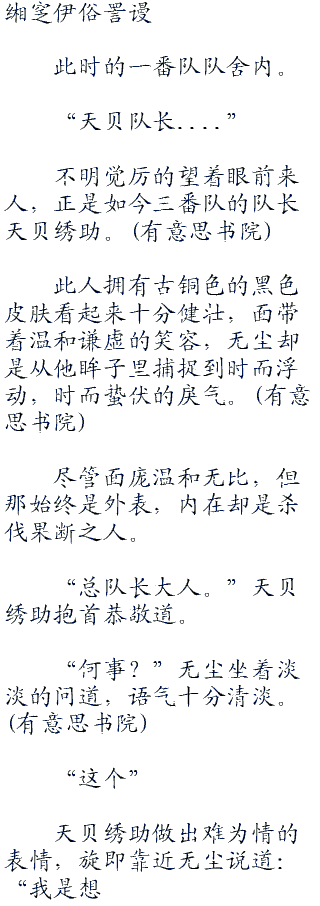 缃窆伊俗詈谩
此时的一番队队舍内。
“天贝队长....”
不明觉厉的望着眼前来
人，正是如今三番队的队长
天贝绣助。(有意思书院)
此人拥有古铜色的黑色
皮肤看起来十分健壮，面带
着温和谦虚的笑容，无尘却
是从他眸子里捕捉到时而浮
动，时而蛰伏的戾气。(有意
思书院)
尽管面庞温和无比，但
那始终是外表，内在却是杀
伐果断之人。
“总队长大人。”天贝
绣助抱首恭敬道。
“何事？”无尘坐着淡
淡的问道，语气十分清淡。
(有意思书院)
“这个”
天贝绣助做出难为情的
表情，旋即靠近无尘说道：
“我是想